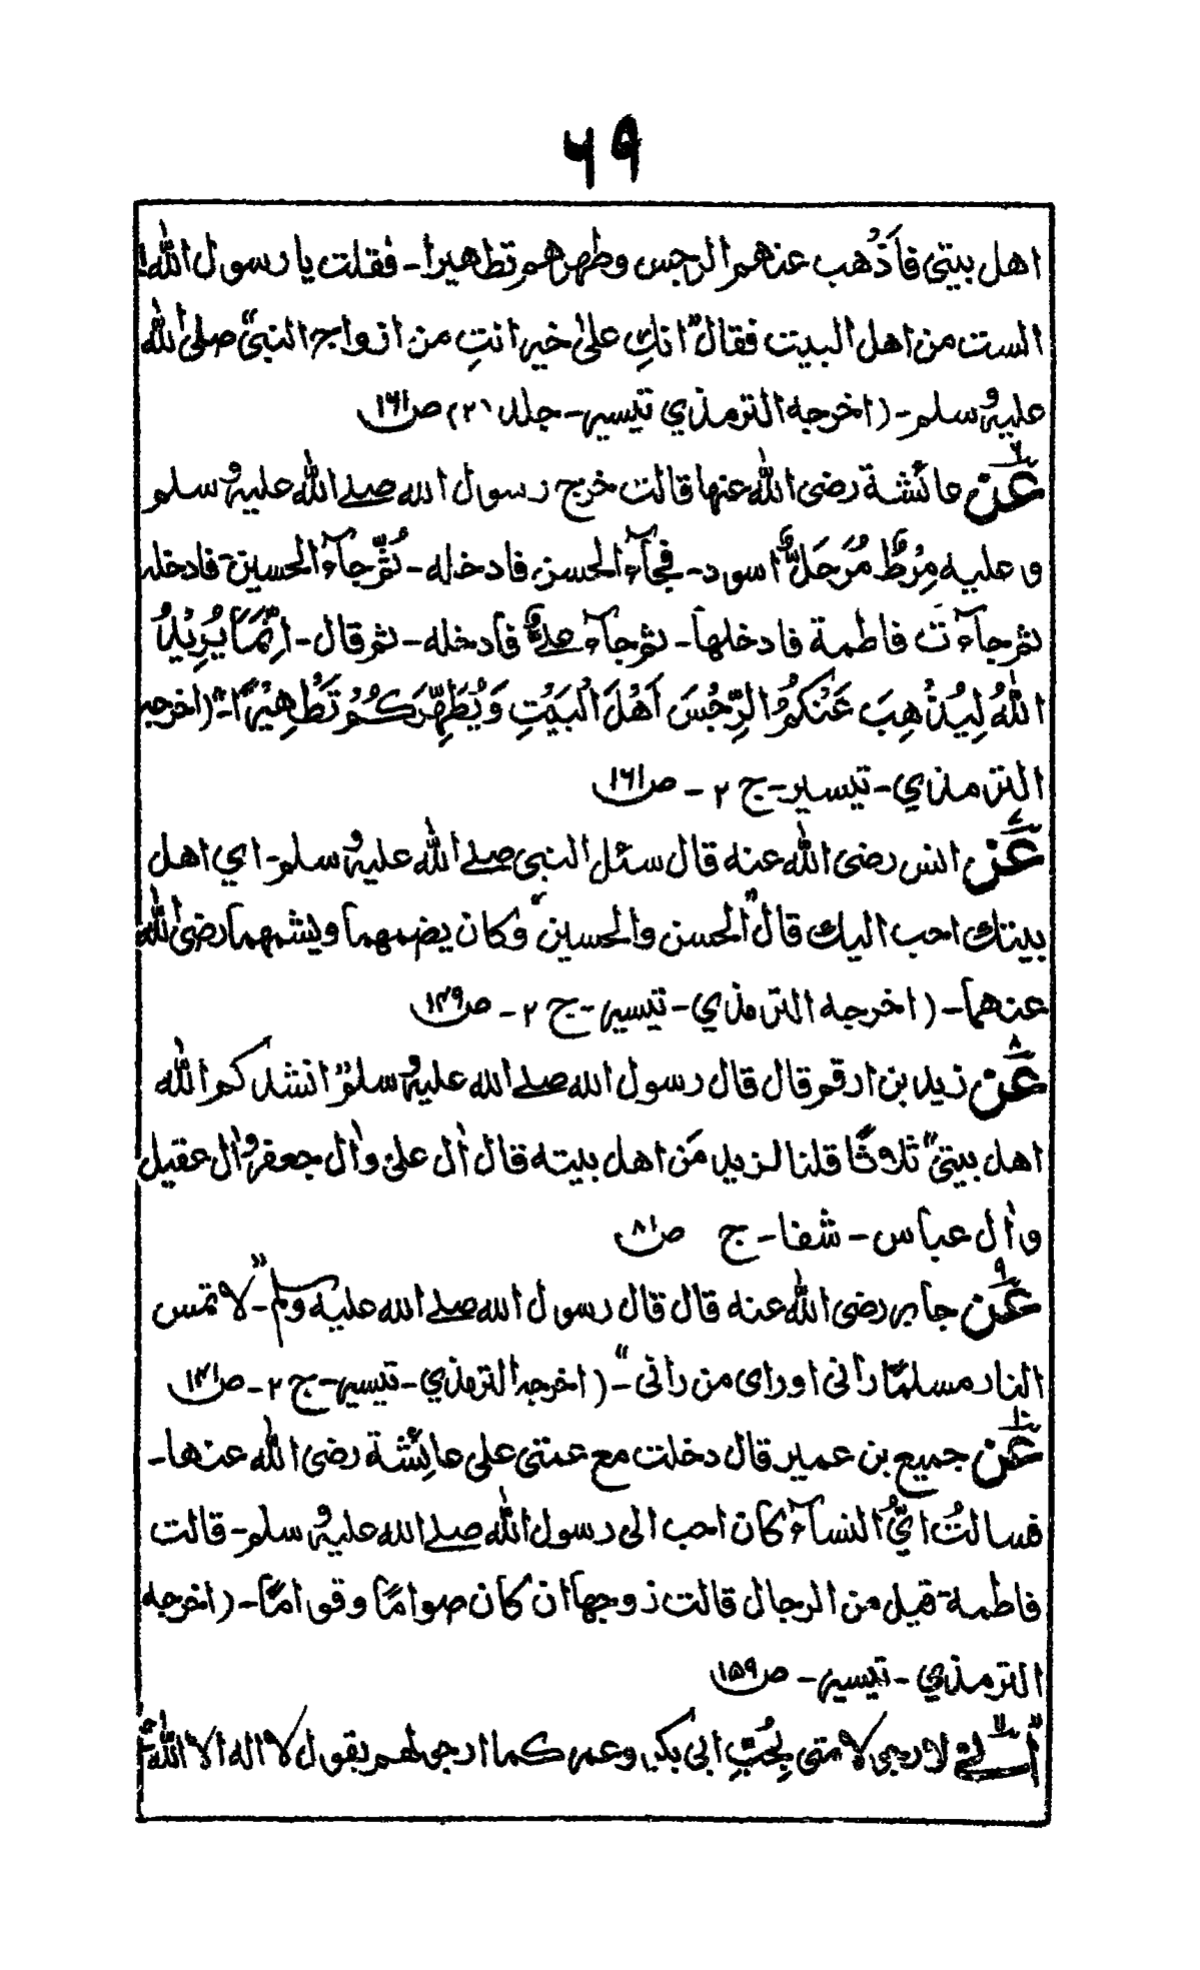 ۶۹
اهل بيتى فاَذْهب عنهم الرجس وطهرهم تطهيرا- فقلت يا رسول الله!
الست من اهل البيت فقال "انكِ علىٰ خير انتِ من ازواج النبى" صلى الله
عليه وسلم- (اخرجه الترمذي تيسير- جلد ۲) ص۱۶۱
۶ عَن عائشة رضى الله عنها قالت خرج رسول الله صلے الله عليه وسلم
و عليه مِرْطٌ مُرَحَلٌ اسود- فجآء الحسن فادخله- ثُمَّ جآء الحسين فادخله
ثم جآءت فاطمة فادخلها- ثم جآء علىٌّ فادخله- ثم قال- اِنَّمَا يُرِيْدُ
اللهُ لِيُذْهِبَ عَنْكُمُ الرِّجْسَ اَهْلَ الْبَيْتِ وَيُطَهِّرَكُمْ تَطْهِيْرًا"- (اخرجه
الترمذي- تيسير- ج ۲- ص۱۶۱
۷ عَن انس رضى الله عنه قال سئل النبى صلے الله عليه وسلم- اي اهل
بيتك احب اليك قال "الحسن والحسين" وكان يضمهما ويشمهما رضى الله
عنهما- (اخرجه الترمذي- تيسير- ج ۲- ص۱۴۹
۸ عَن زيد بن ارقم قال قال رسول الله صلے الله عليه وسلم "انشدكم الله
اهل بيتى" ثلاثًا قلنا لزيد مَن اهل بيته قال اٰل على واٰل جعفر واٰل عقيل
واٰل عباس- شفا- ج ص۸۱
۹ عَن جابر رضى الله عنه قال قال رسول الله صلے الله عليه وسلم- "لا تمس
النار مسلمًا رانى او راى من رانى"- (اخرجه الترمذي- تيسير- ج ۲- ص۱۴۱
۱۰ عَن جميع بن عمير قال دخلت مع عمتى على عائشة رضى الله عنها-
فسالتُ اىُّ النسآء كان احب الى رسول الله صلے الله عليه وسلم- قالت
فاطمة قيل من الرجال قالت زوجها ان كان صوامًا وقوامًا- (اخرجه
الترمذي- تيسير- ص۱۵۹
۱۱ "اِنّے لارجى لامتى بِحُبِّ ابى بكر وعمر كما ارجى لهم بقول لا اله الا الله"